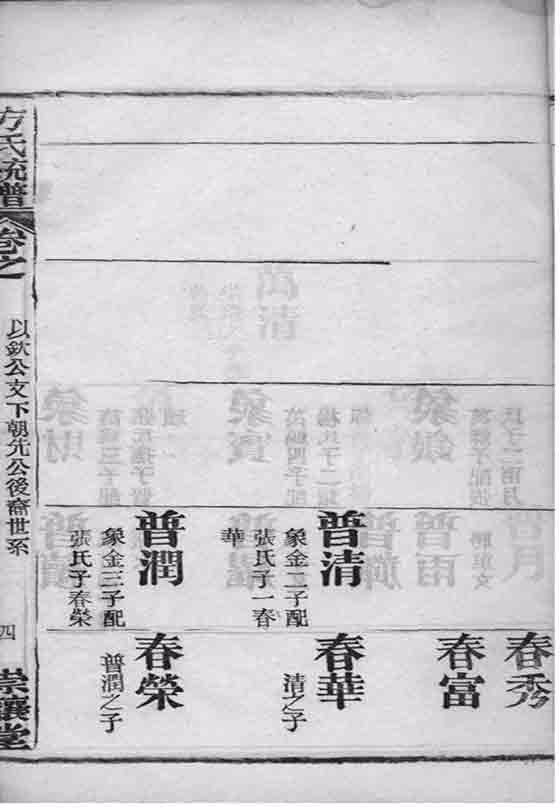 普清
象金二子配
張氏子一春
華
普潤
象金三子配
張氏子春榮
春秀
春富
春華
清之子
春榮
普潤之子
方氏統譜
卷之
以欽公支下朝先公後裔世系
四
堂